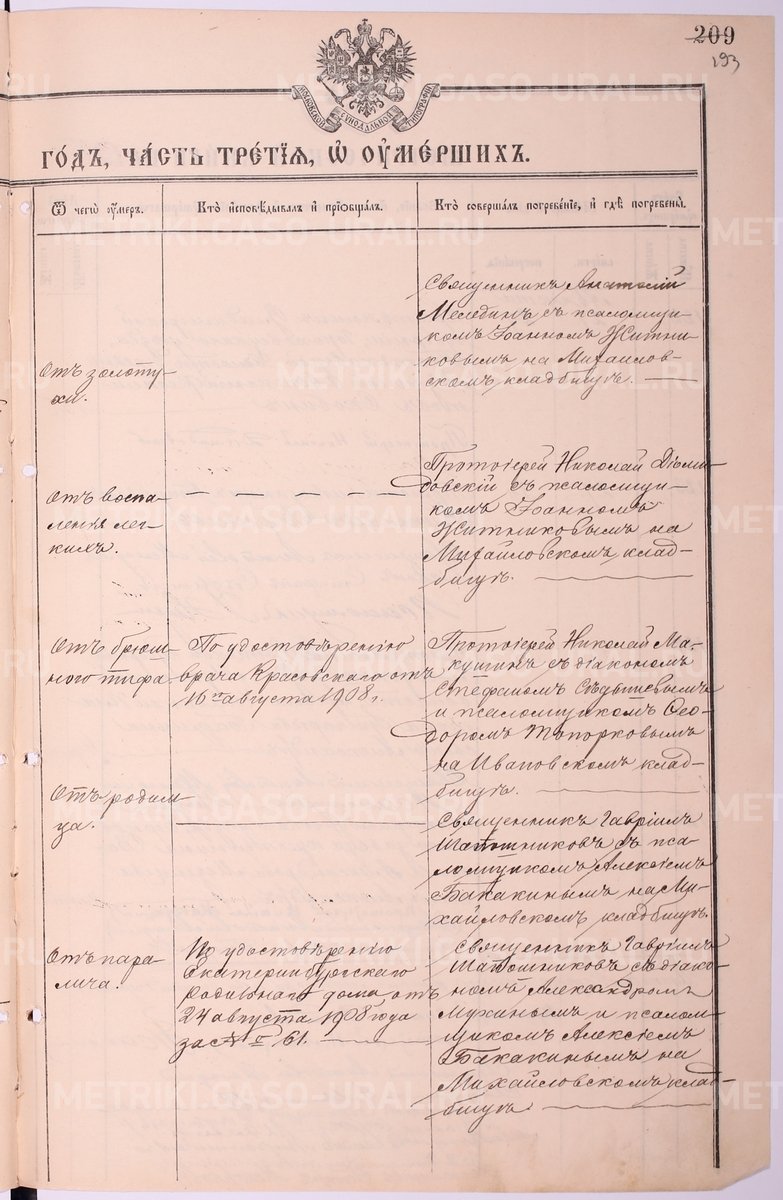 209
193
МОСКОВСКОЙ СѴНОДАЛЬНОЙ ТИПОГРАФІИ
ГО́ДЪ, ЧА́СТЬ ТРЕ́ТІѦ, Ѡ ОУМЕ́РШИХЪ.
Ѿ чегѡ̀ оу́меръ.
Кто̀ и҆сповѣ́дывалъ и҆ прїѡбща́лъ.
Кто̀ соверша́лъ погребе́нїе, и҆ гдѣ̀ погребены̀.
Отъ золоту-
хи.
Священникъ Анатолій
съ псаломщи-
комъ Іоанномъ Житни-
ковымъ на Михайлов-
скомъ кладбищѣ.
Отъ воспа-
ленія лег-
кихъ.
— — — —
Протоіерей Николай Діоми-
довскій съ псаломщи-
комъ Іоанномъ
Житниковымъ на
Михайловскомъ клад-
бищѣ.
Отъ брюш-
ного тифа
По удостовѣренію
врача Красовскаго отъ
16го августа 1908 г.
Протоіерей Николай Ма-
кушинъ съ діакономъ
Стефаномъ
и псаломщикомъ Ѳео-
доромъ Топорковымъ
на Ивановскомъ клад-
бищѣ.
Отъ родим-
ца.
Священникъ Гавріилъ
Шапошниковъ съ пса-
ломщикомъ Алексѣемъ
Бакакинымъ на Ми-
хайловскомъ кладбищѣ.
Отъ пара-
лича.
По удостовѣренію
Екатеринбургскаго
родильнаго дома, отъ
24 августа 1908 года
за № 61.
Священникъ Гавріилъ
Шапошниковъ съ діако-
номъ Александромъ
Мухинымъ и псалом-
щикомъ Алексѣемъ
Бакакинымъ на
Михайловскомъ клад-
бищѣ
METRIKI.GASO-URAL.RU